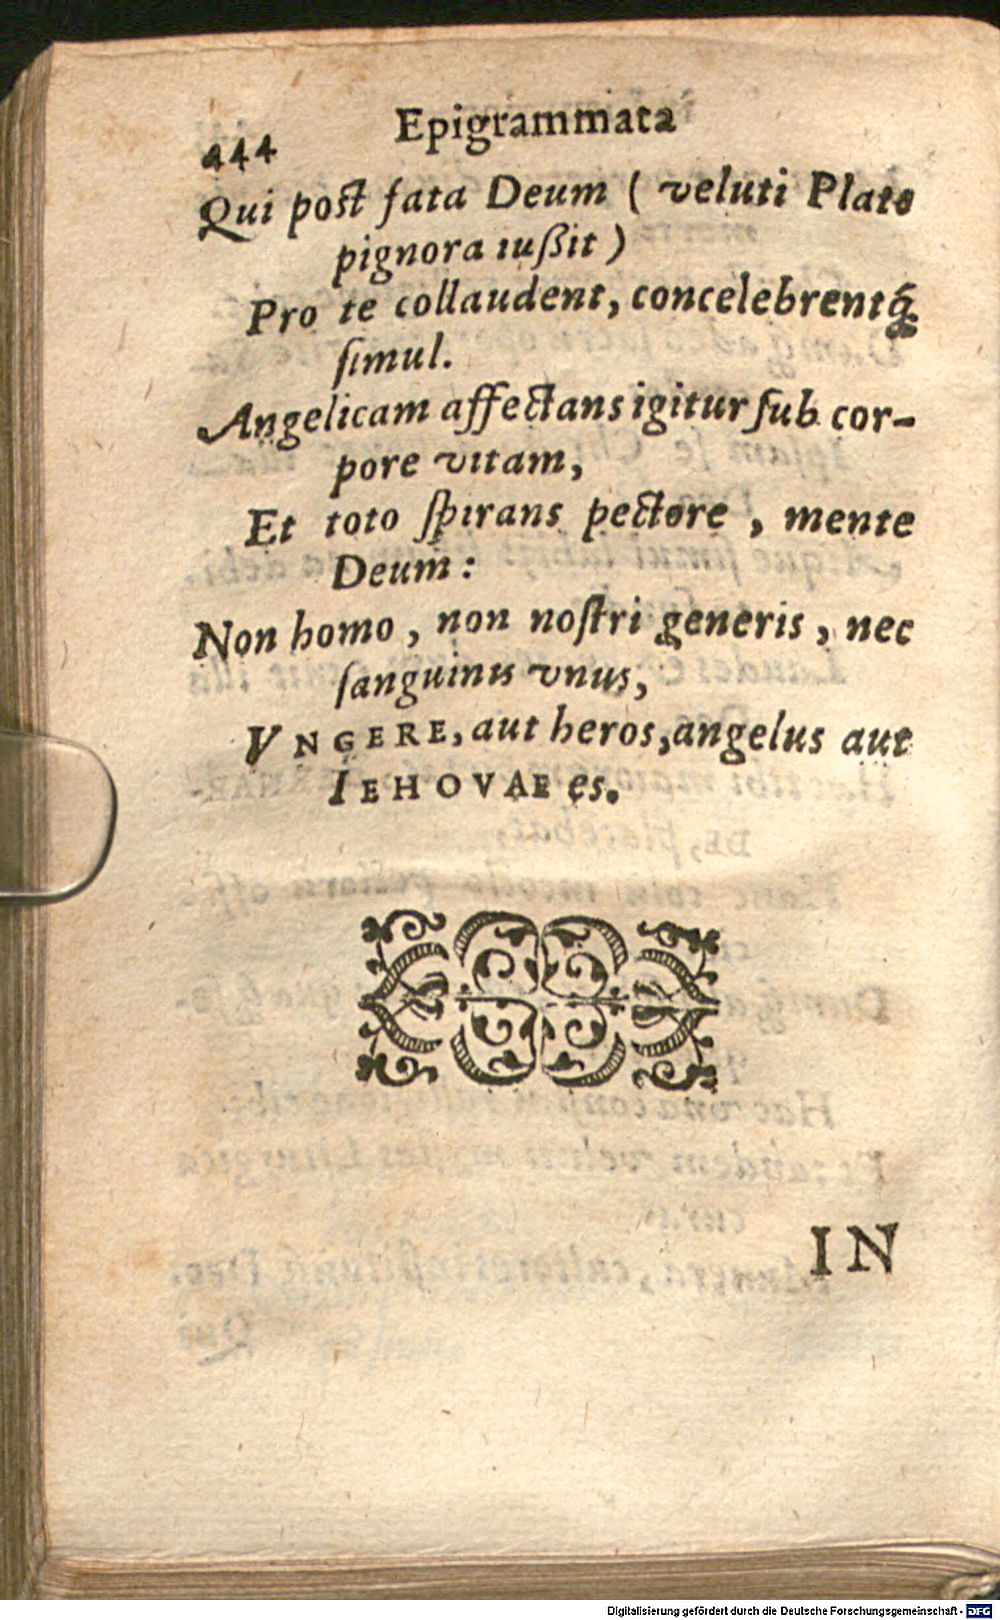 444 Epigrammata
Qui post fata Deum ( veluti Plato
pignora iußit )
Pro te collaudent, concelebrentq́;
ſimul.
Angelicam affectans igitur ſub cor-
pore vitam,
Et toto ſpirans pectore , mente
Deum :
Non homo , non noſtri generis , nec
ſanguinis vnus,
VNGERE, aut heros, angelus aut
IEHOVAE es.
IN
Digitalisierung gefördert durch die Deutsche Forschungsgemeinschaft - DFG